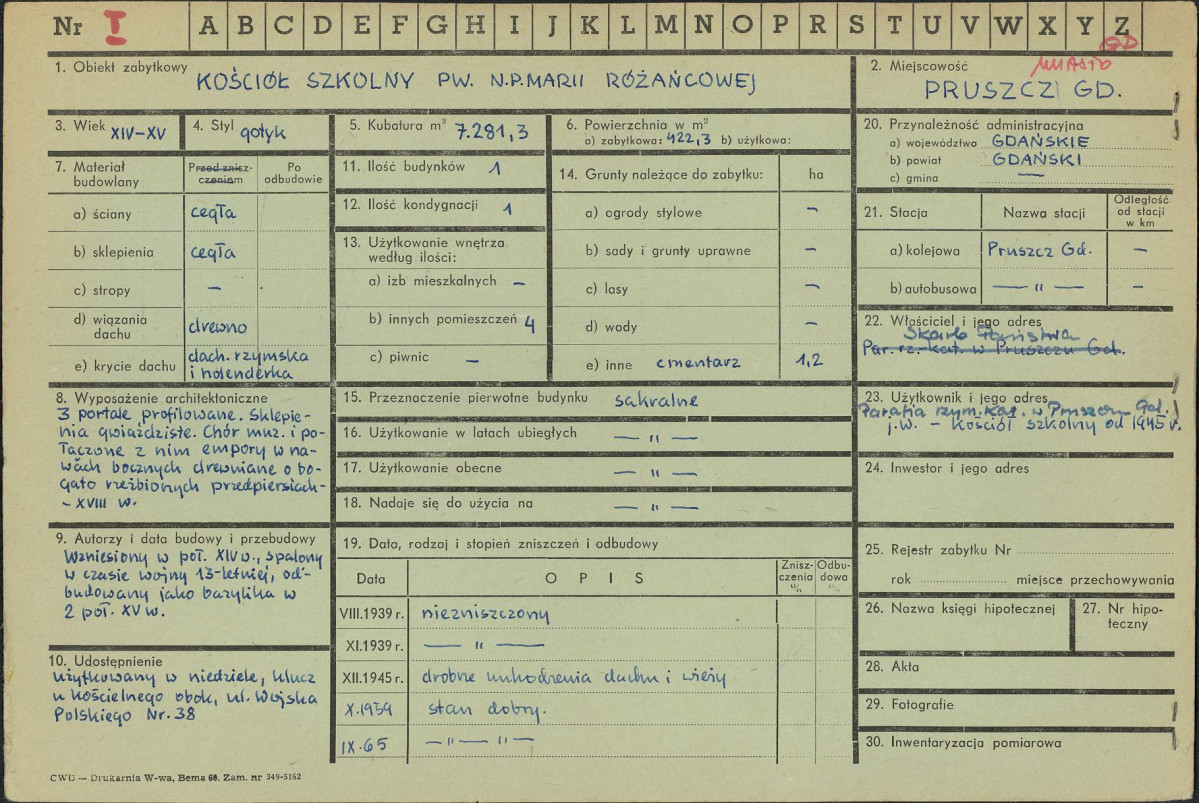 Nr I A B C D E F G H I J K L M N O P R S T U V W X Y Z
GD
MIASTO
1. Obiekt zabytkowy
KOŚCIÓŁ SZKOLNY PW. N.P.MARII RÓŻAŃCOWEJ
2. Miejscowość
PRUSZCZ GD.
3. Wiek XIV–XV
4. Styl gotyk
5. Kubatura m³ 7.281,3
6. Powierzchnia w m²
a) zabytkowa: 422,3 b) użytkowa:
7. Materiał budowlany
Przed znisz-czeniem
Po odbudowie
a) ściany cegła
b) sklepienia cegła
c) stropy –
d) wiązania dachu drewno
e) krycie dachu dach. rzymska
i holenderka
8. Wyposażenie architektoniczne
3 portale profilowane. Sklepie-
nia gwiaździste. Chór muz. i po-
łączone z nim empory w na-
wach bocznych drewniane o bo-
gato rzeźbionych przedpiersiach-
- XVIII w.
9. Autorzy i data budowy i przebudowy
Wzniesiony w poł. XIV w., spalony
w czasie wojny 13-letniej, od-
budowany jako bazylika w
2 poł. XV w.
10. Udostępnienie
użytkowany w niedziele, klucz
u kościelnego obok, ul. Wojska
Polskiego Nr. 38
11. Ilość budynków 1
12. Ilość kondygnacji 1
13. Użytkowanie wnętrza
według ilości:
a) izb mieszkalnych –
b) innych pomieszczeń 4
c) piwnic –
14. Grunty należące do zabytku: ha
a) ogrody stylowe –
b) sady i grunty uprawne –
c) lasy –
d) wody –
e) inne cmentarz 1,2
15. Przeznaczenie pierwotne budynku sakralne
16. Użytkowanie w latach ubiegłych — " —
17. Użytkowanie obecne — " —
18. Nadaje się do użycia na — " —
19. Data, rodzaj i stopień zniszczeń i odbudowy
Data OPIS Znisz-czenia % Odbu-dowa %
VIII.1939 r. niezniszczony
XI.1939 r. — " —
XII.1945 r. drobne uszkodzenia dachu i wieży
X.1959 stan dobry.
IX.65 — " — " —
20. Przynależność administracyjna
a) województwo GDAŃSKIE
b) powiat GDAŃSKI
c) gmina —
21. Stacja Nazwa stacji Odległość od stacji w km
a) kolejowa Pruszcz Gd. –
b) autobusowa — " — –
22. Właściciel i jego adres
Skarb Państwa
Par. rz.-kat. w Pruszczu Gd.
23. Użytkownik i jego adres
Parafia rzym.kat. w Pruszczu Gd.
j.w. – Kościół szkolny od 1945 r.
24. Inwestor i jego adres
25. Rejestr zabytku Nr
rok miejsce przechowywania
26. Nazwa księgi hipotecznej
27. Nr hipo-
teczny
28. Akta
29. Fotografie
30. Inwentaryzacja pomiarowa
CWD — Drukarnia W-wa, Bema 60. Zam. nr 349-5162